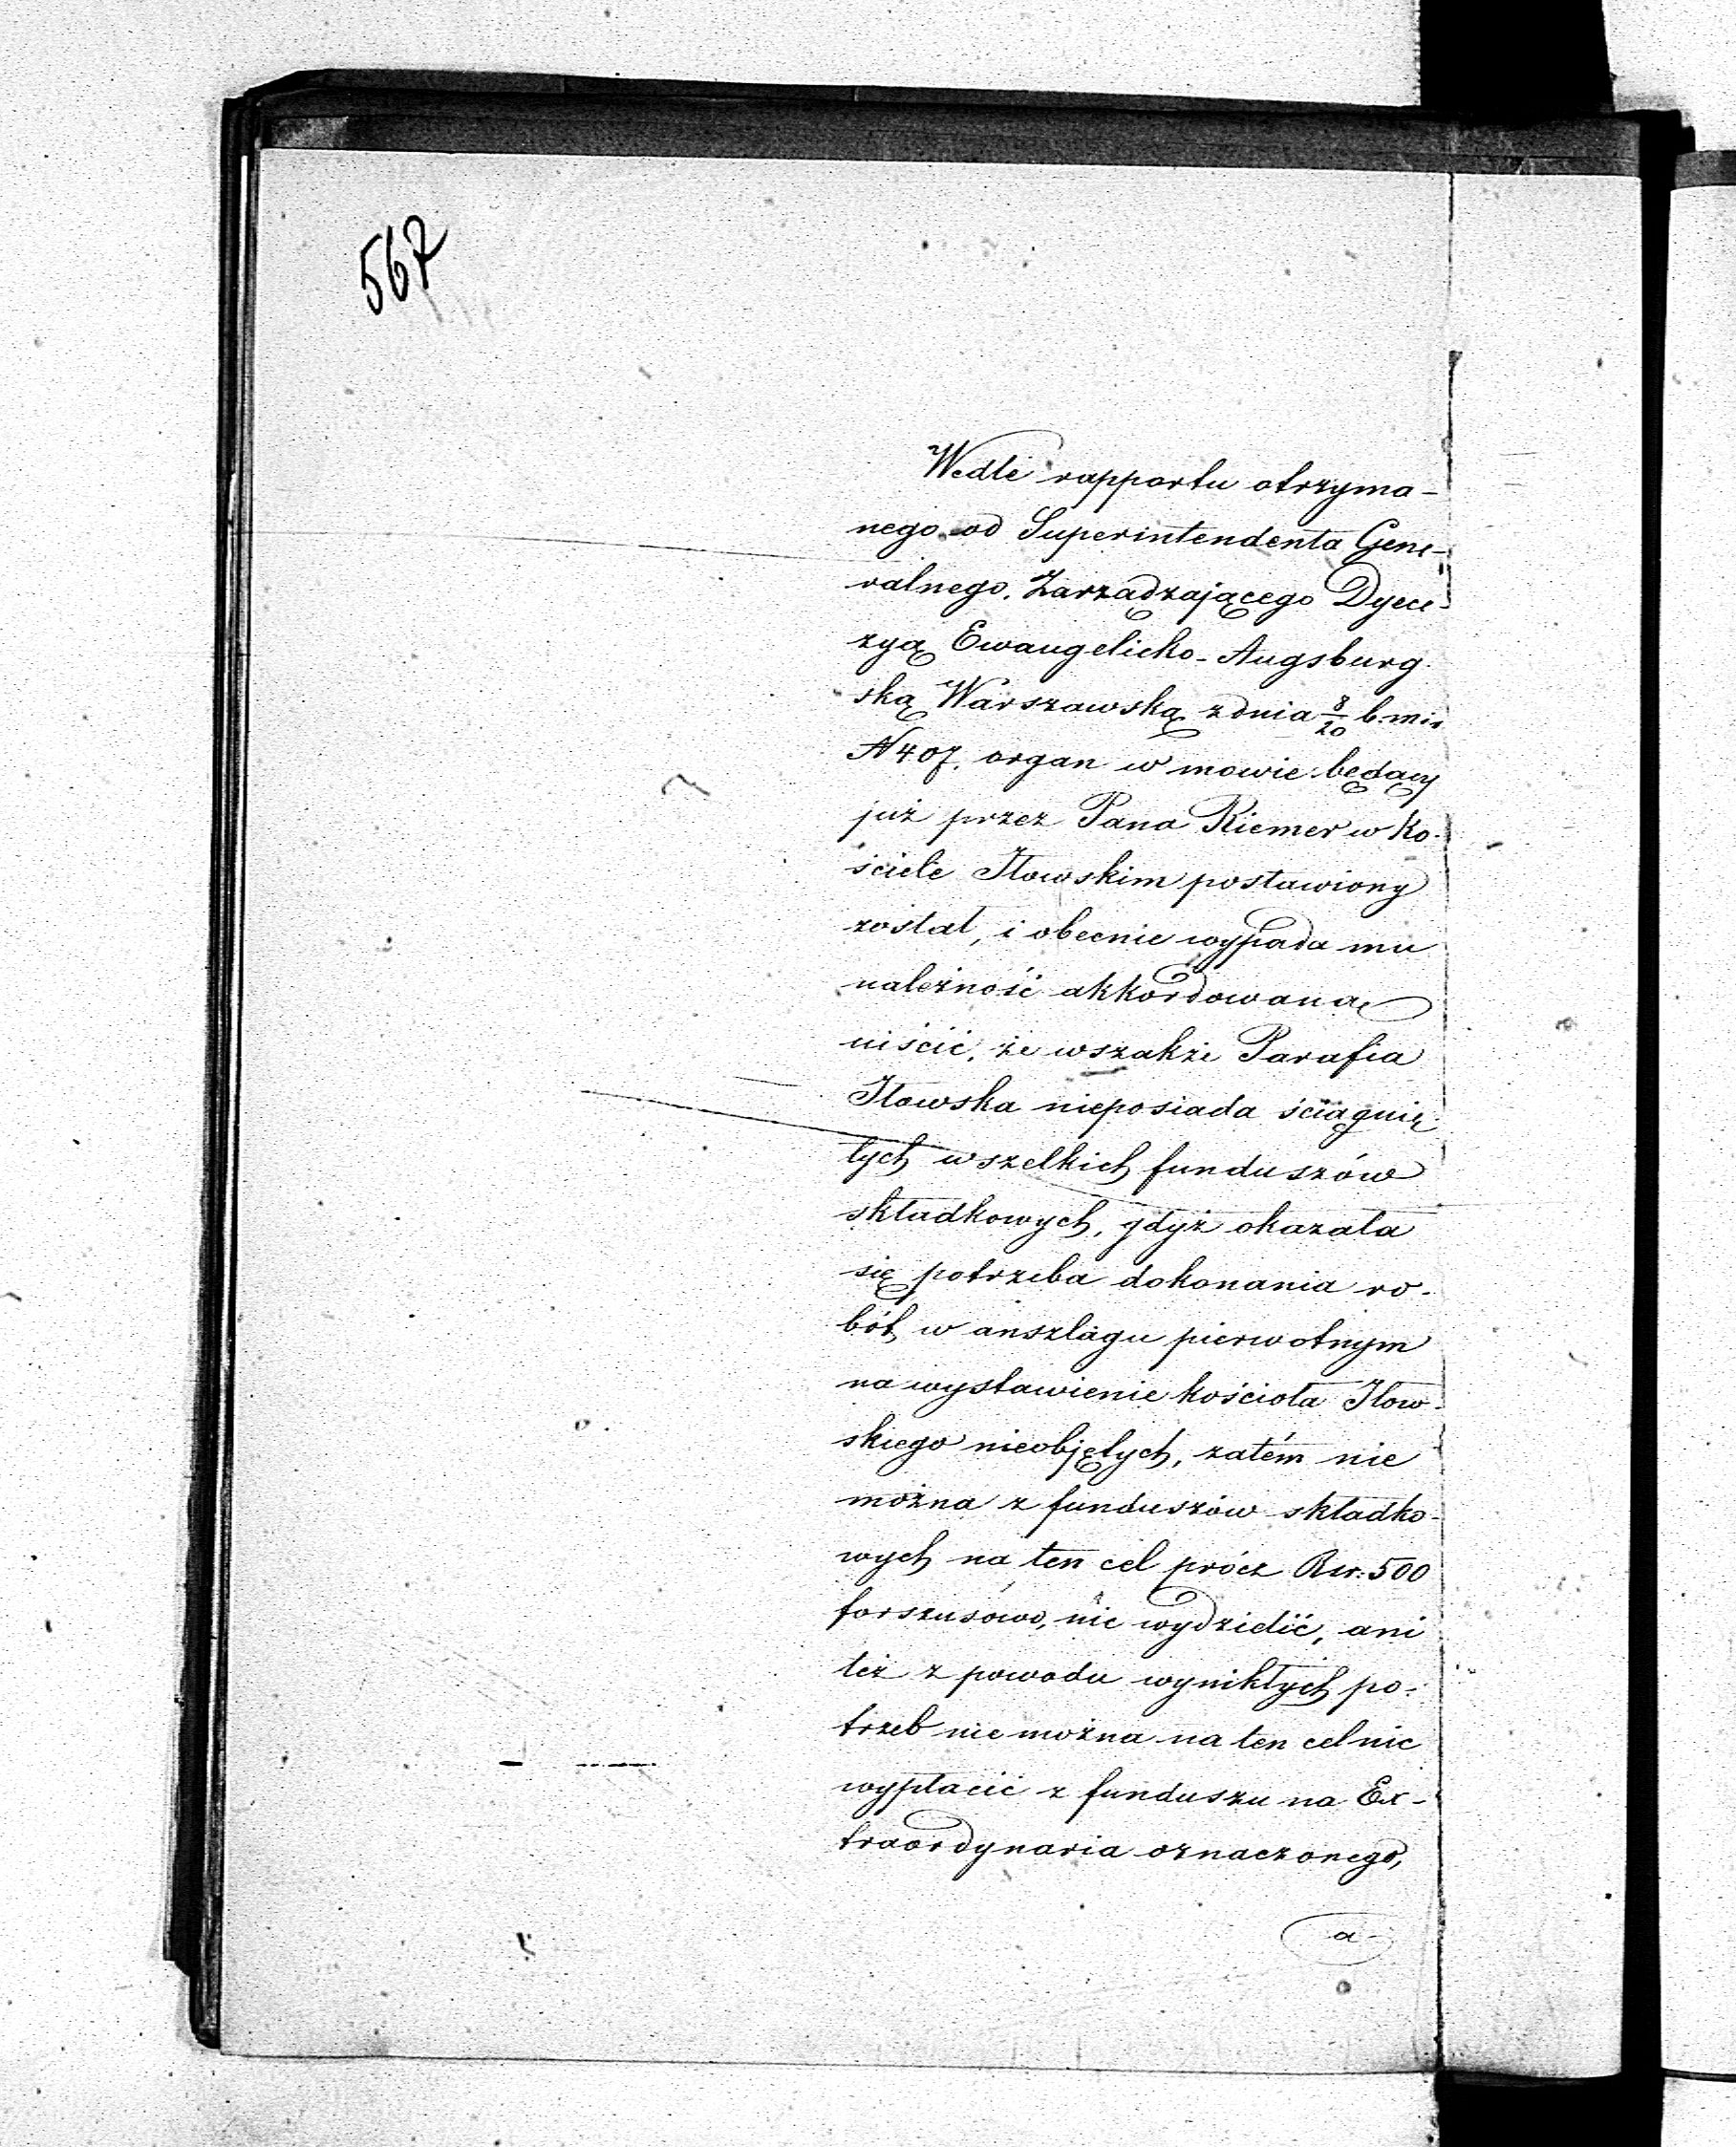 567
Wedle rapportu otrzyma-
nego od Superintendenta Gene-
ralnego, Zarządzającego Dyece-
zyą Ewangelicko-Augsburg-
ską Warszawską z dnia 8/20 b. m. i r.
N 407. organ w mowie będący
już przez Pana Riemer w Ko-
ściele Iłowskim postawiony
został, i obecnie wypada mu
należność akkordowaną
uiścić, że wszakże Parafia
Iłowska nieposiada ściągnię-
tych wszelkich funduszów
składkowych, gdyż okazała
się potrzeba dokonania ro-
bót, w anszlagu pierwotnym
na wystawienie kościoła Iłow-
skiego nieobjętych, zatém nie
można z funduszów składko-
wych na ten cel prócz Rsr. 500
forszusowo, nic wydzielić, ani
też z powodu wynikłych po-
trzeb nie można na ten cel nic
wypłacić z funduszu na Ex-
traordynaria oznaczonego,
a